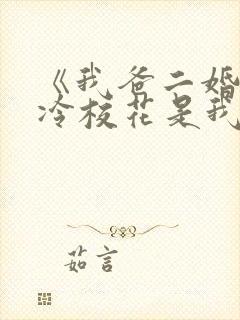 《我爸二婚
冷校花是我
茹言